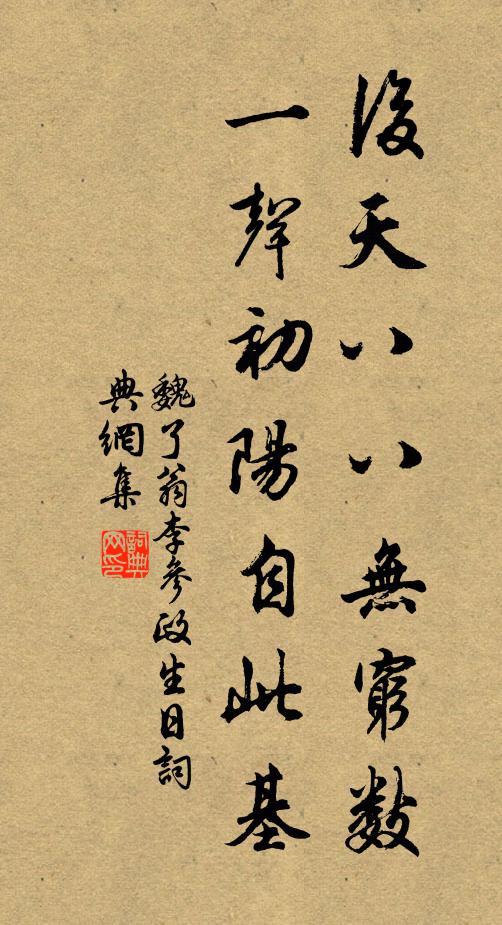 後天八八無窮數
一聲初陽自此基
魏了翁李參政生日詞
典網集
詞典網印